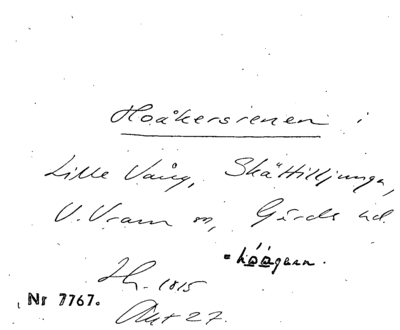 Hoåkersrenen i
Lille Vång, Skättilljunga,
V. Vram sn, Gärds hd.
Jh. 1815
Nr 7767.
Akt 27.